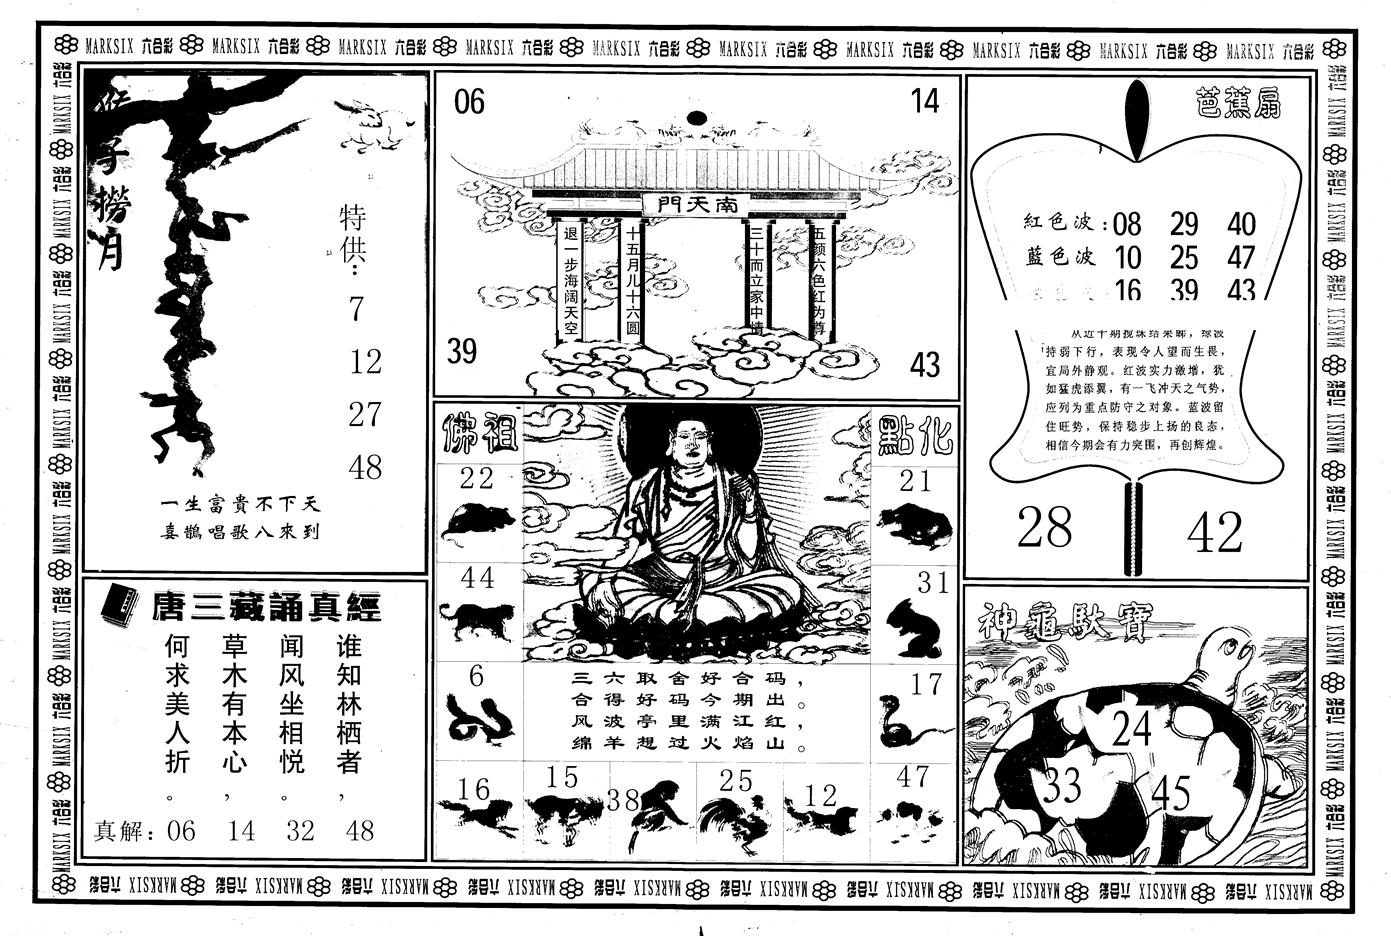 MARKSIX 六合彩 MARKSIX 六合彩 MARKSIX 六合彩 MARKSIX 六合彩 MARKSIX 六合彩 MARKSIX 六合彩 MARKSIX 六合彩 MARKSIX 六合彩 MARKSIX 六合彩 MARKSIX 六合彩
猴子撈月
特供：
7
12
27
48
一生富貴不下天
喜鵲唱歌八來到
06
14
南天門
退一步海阔天空
十五月儿十六圆
三十而立家中情
五颜六色红为尊
39
43
芭蕉扇
紅色波：08 29 40
藍色波 10 25 47
16 39 43
从近十期搅珠结果睇，绿波
持弱下行，表现令人望而生畏，
宜局外静观。红波实力激增，犹
如猛虎添翼，有一飞冲天之气势，
应列为重点防守之对象。蓝波留
住旺势，保持稳步上扬的良态，
相信今期会有力突围，再创辉煌。
28
42
佛祖
點化
22
21
44
31
6
17
三六取舍好合码，
合得好码今期出。
风波亭里满江红，
绵羊想过火焰山。
16
15
38
25
12
47
唐三藏誦真經
谁知林栖者，
闻风坐相悦。
草木有本心，
何求美人折。
真解：06 14 32 48
神龜馱寶
24
33
45
MARKSIX 六合彩 MARKSIX 六合彩 MARKSIX 六合彩 MARKSIX 六合彩 MARKSIX 六合彩 MARKSIX 六合彩 MARKSIX 六合彩 MARKSIX 六合彩 MARKSIX 六合彩 MARKSIX 六合彩